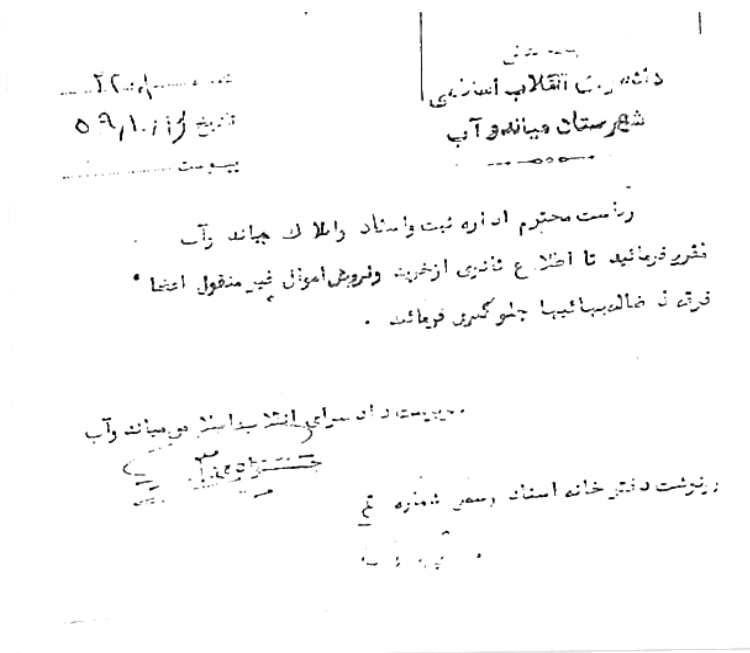 بسمه تعالی
دادسرای انقلاب اسلامی
شهرستان میاندوآب
شماره
تاریخ ۵۹/۱۰/
پیوست
ریاست محترم اداره ثبت واسناد واملاک میاندوآب
مقرر فرمائید تا اطلاع ثانوی ازخرید وفروش اموال غیر منقول اعضا
فرقه ضاله بهائیها جلوگیری فرمائید .
سرپرست دادسرای انقلاب اسلامی میاندوآب
رونوشت دفتر خانه اسناد رسمی شماره